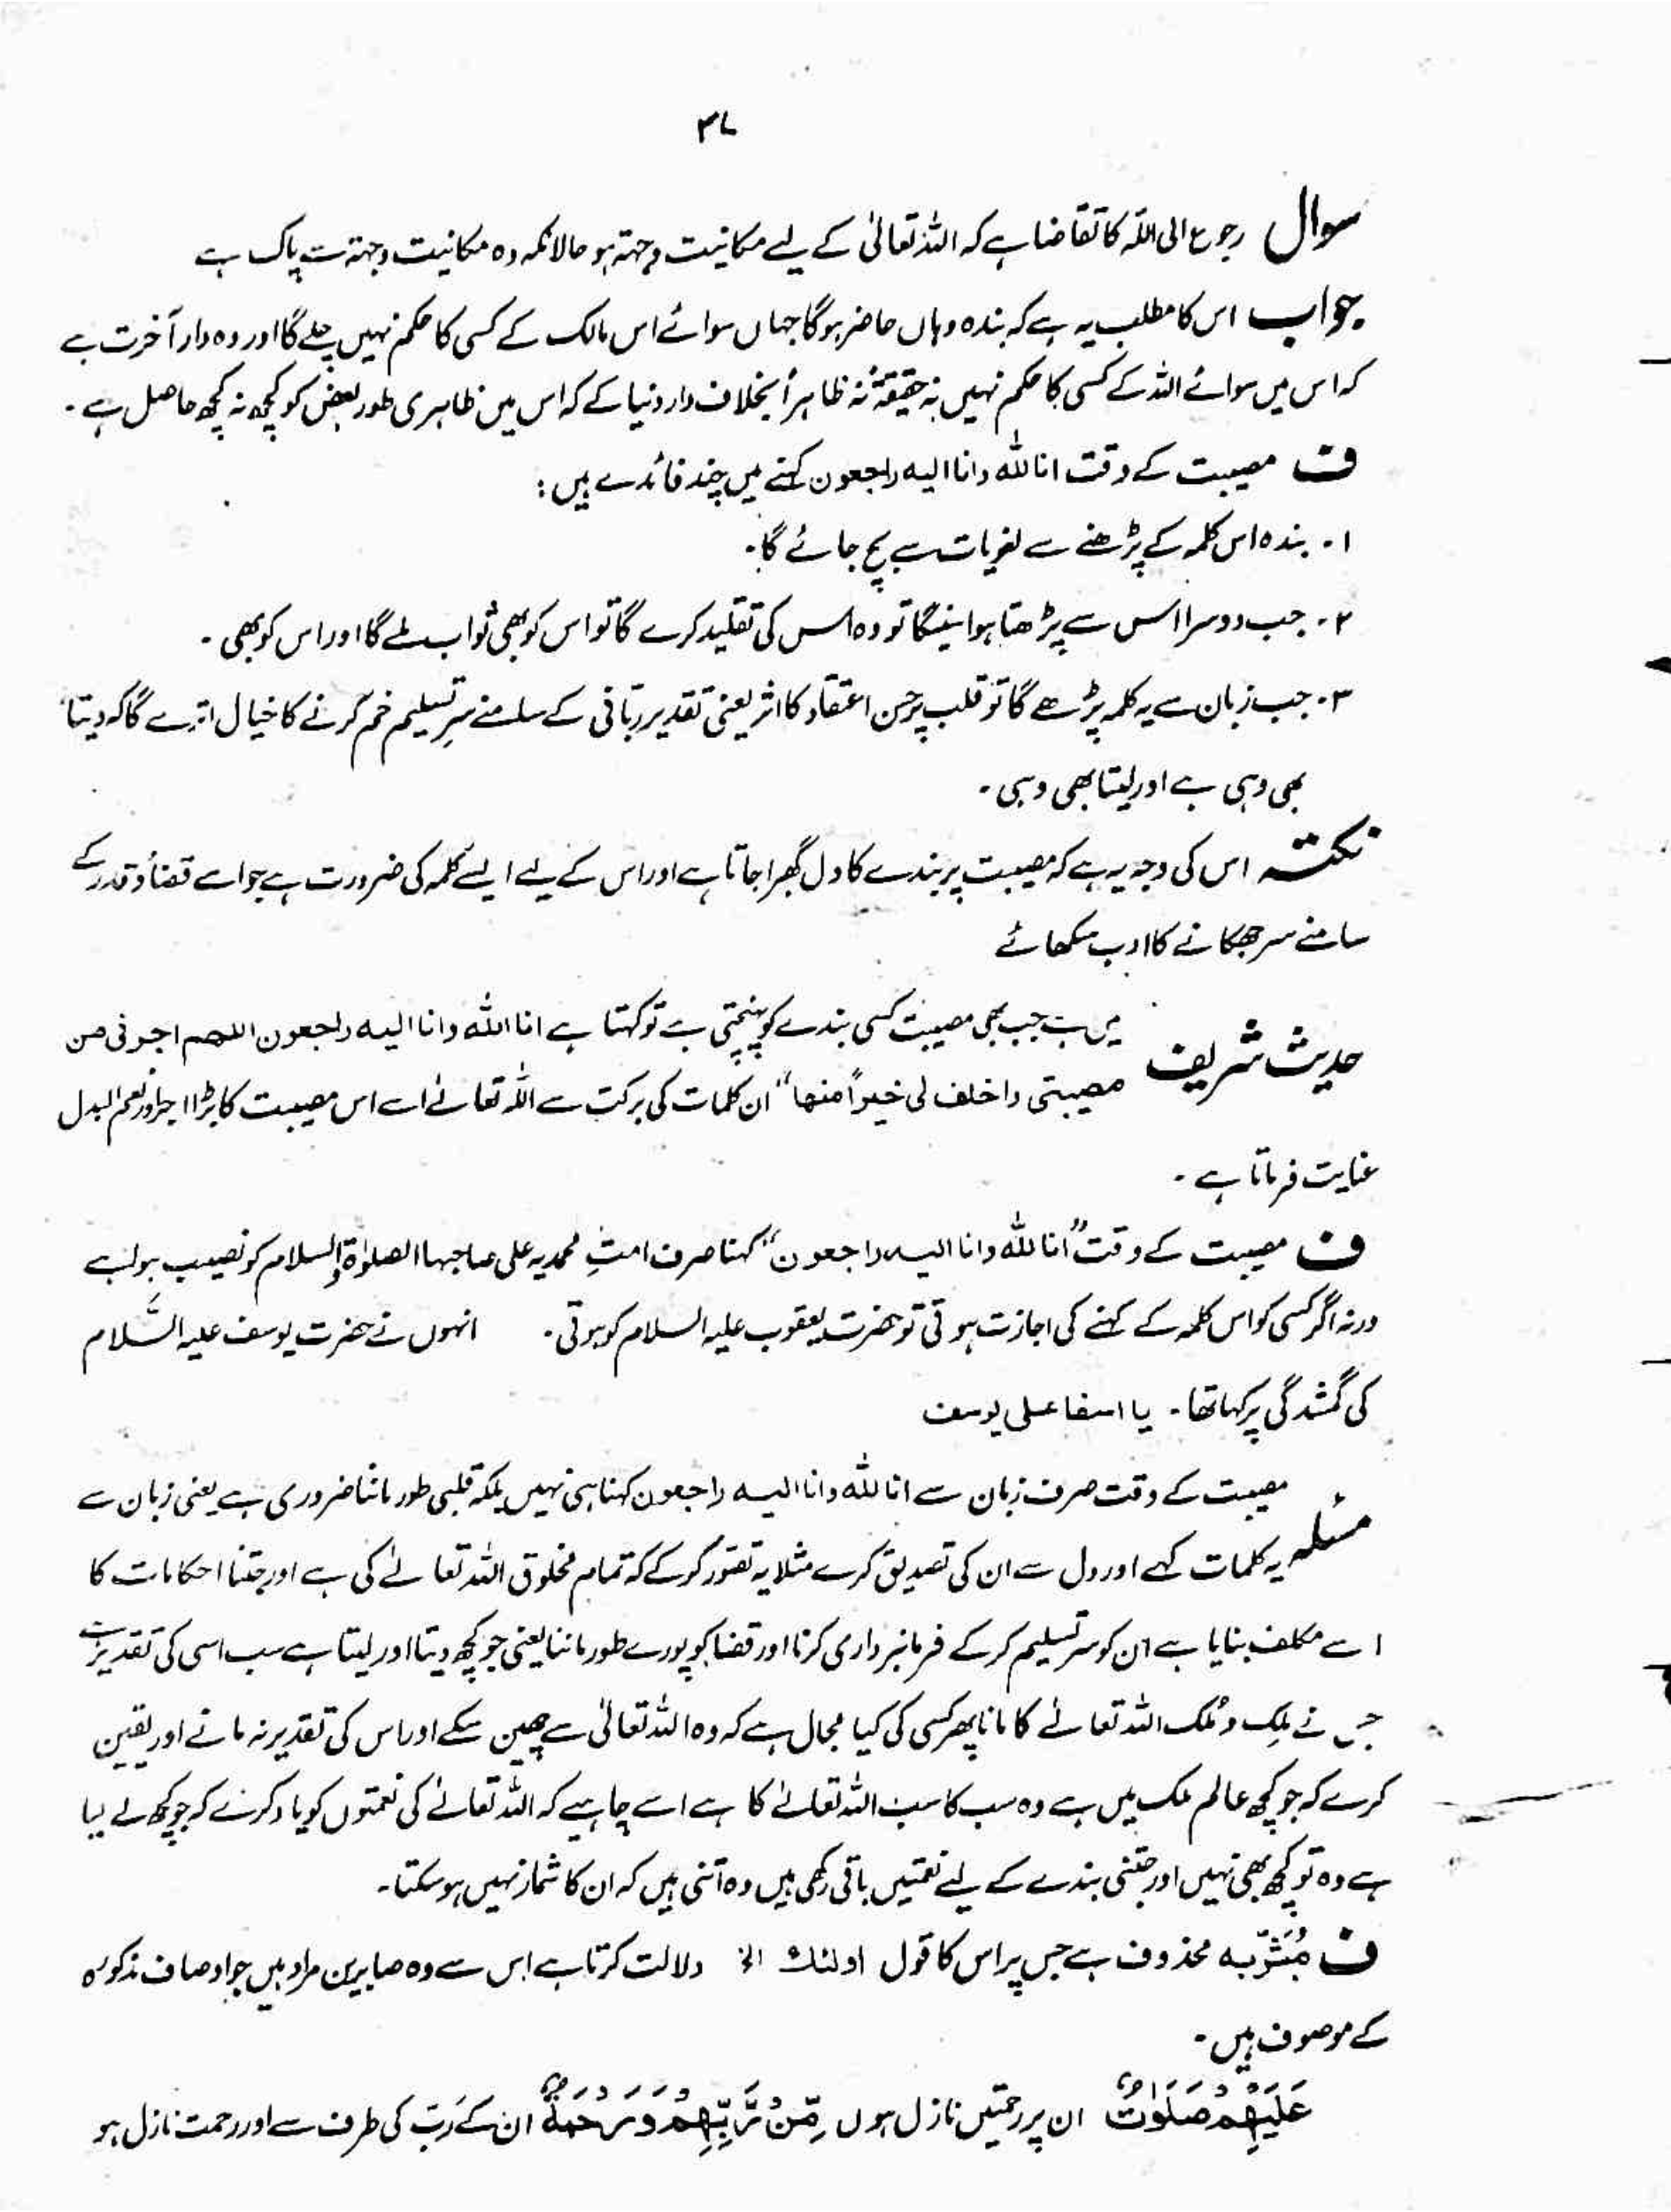 ۳۷
سوال رجوع الی اللہ کا تقاضا ہے کہ اللہ تعالیٰ کے لیے مکانیت و جہتہ ہو حالانکہ وہ مکانیت و جہتہ سے پاک ہے
جواب اس کا مطلب یہ ہے کہ بندہ وہاں حاضر ہوگا جہاں سوائے اس مالک کے کسی کا حکم نہیں چلے گا اور وہ دار آخرت ہے
کہ اس میں سوائے اللہ کے کسی کا حکم نہیں نہ حقیقۃً نہ ظاہراً بخلاف دار دنیا کے کہ اس میں ظاہری طور بعض کو کچھ نہ کچھ حاصل ہے ۔
ف مصیبت کے وقت انا للہ وانا الیہ راجعون کہنے میں چند فائدے ہیں :
۱۔ بندہ اس کلمہ کے پڑھنے سے لغویات سے بچ جائے گا۔
۲۔ جب دوسرا اس سے پڑھتا ہوا سنیگا تو وہ اس کی تقلید کرے گا تو اس کو بھی ثواب ملے گا اور اس کو بھی ۔
۳۔ جب زبان سے یہ کلمہ پڑھے گا تو قلب پر حسن اعتقاد کا اثر یعنی تقدیر ربانی کے سامنے سرِ تسلیم خم کرنے کا خیال اترے گا کہ دیتا
بھی وہی ہے اور لیتا بھی وہی ۔
نکتہ اس کی وجہ یہ ہے کہ مصیبت پر بندے کا دل گھبرا جاتا ہے اور اس کے لیے ایسے کلمہ کی ضرورت ہے جو اسے قضأ و قدر کے
سامنے سر جھکانے کا ادب سکھائے
حدیث شریف میں ہے جب بھی مصیبت کسی بندے کو پہنچتی ہے تو کہتا ہے انا للہ وانا الیہ راجعون اللھم اجرنی من
مصیبتی واخلف لی خیراً منھا“ ان کلمات کی برکت سے اللہ تعالےٰ اسے اس مصیبت کا بڑا اجر اور نعم البدل
عنایت فرماتا ہے ۔
ف مصیبت کے وقت ”انا للہ وانا الیہ راجعون“ کہنا صرف امتِ محمدیہ علی صاجہا الصلوٰۃ والسلام کو نصیب ہوا ہے
ورنہ اگر کسی کو اس کلمہ کے کہنے کی اجازت ہوتی تو حضرت یعقوب علیہ السلام کو ہوتی ۔ انہوں نے حضرت یوسف علیہ السَّلام
کی گمشدگی پر کہا تھا ۔ یا اسفا علی یوسف
مصیبت کے وقت صرف زبان سے انا للہ وانا الیہ راجعون کہنا ہی نہیں بلکہ قلبی طور ماننا ضروری ہے یعنی زبان سے
مسئلہ یہ کلمات کہے اور دل سے ان کی تصدیق کرے مثلا یہ تصور کرکے کہ تمام مخلوق اللہ تعالےٰ کی ہے اور جتنا احکامات کا
اسے مکلف بنایا ہے ان کو سر تسلیم کرکے فرمانبرداری کرنا اور قضا کو پورے طور ماننا یعنی جو کچھ دیتا اور لیتا ہے سب اسی کی تقدیر ہے
جس نے مِلک و مُلک اللہ تعالےٰ کا مانا پھر کسی کی کیا مجال ہے کہ وہ اللہ تعالیٰ سے چھین سکے اور اس کی تقدیر نہ مانے اور یقین
کرے کہ جو کچھ عالم ملک میں ہے وہ سب کا سب اللہ تعالےٰ کا ہے اسے چاہیے کہ اللہ تعالےٰ کی نعمتوں کو یاد کرے کہ جو کچھ لے لیا
ہے وہ تو کچھ بھی نہیں اور جتنی بندے کے لیے نعمتیں باقی رکھی ہیں وہ اتنی ہیں کہ ان کا شمار نہیں ہو سکتا۔
ف مُبَشَّر بِہ محذوف ہے جس پر اس کا قول اولئک الخ دلالت کرتا ہے اس سے وہ صابرین مراد ہیں جو اوصاف مذکورہ
کے موصوف ہیں ۔
عَلَیْهِمْ صَلَوَاتٌ ان پر رحمتیں نازل ہوں مِّنْ رَّبِّهِمْ وَرَحْمَةٌ ان کے رَبّ کی طرف سے اور رحمت نازل ہو